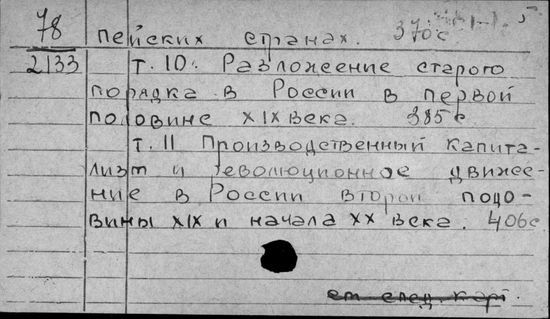 78 пейских странах. 370с 5
2133 т. 10. Разложение старого
порядка в России в первой
половине XIX века. 385 с
т. 11 Производственный капита-
лизм и революционное движе-
ние в России второй поло-
вины XIX и начала XX века. 406с
см след. карт.